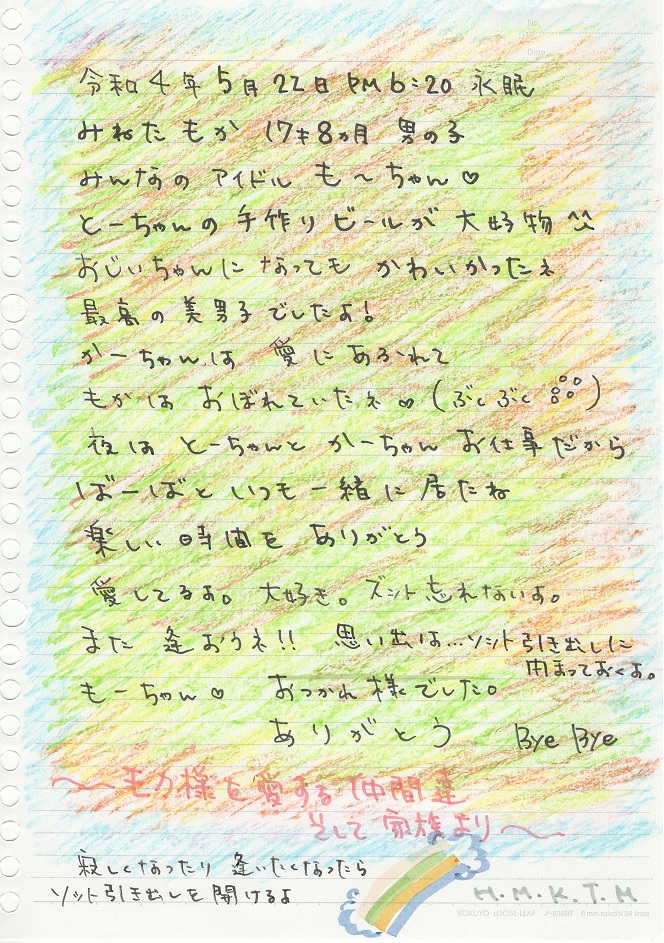 No.
Date
令和4年5月22日 PM6:20 永眠
みねた もか 17才8ヵ月 男の子
みんなの アイドル も〜ちゃん♡
とーちゃんの 手作り ビールが 大好物 ^^
おじいちゃんに なっても かわいかったネ
最高の 美男子 でしたよ!
かーちゃんは 愛に あふれて
もかは おぼれていたネ♡(ぶくぶく)
夜は とーちゃんと かーちゃん お仕事だから
ばーばと いつも 一緒に 居たね
楽しい 時間を ありがとう
愛してるよ。 大好き。 ズット 忘れないよ。
また 逢おうネ!! 思い出は…ソット引き出しに
しまっておくよ。
もーちゃん♡ おつかれ様でした。
ありがとう Bye Bye
〜モカ様を愛する仲間達
そして 家族より〜
寂しくなったり 逢いたくなったら
ソット引き出しを 開けるよ
H.M.K.T.M
KOKUYO LOOSE-LEAF ノ-836BT 6 mm ruled×36 lines